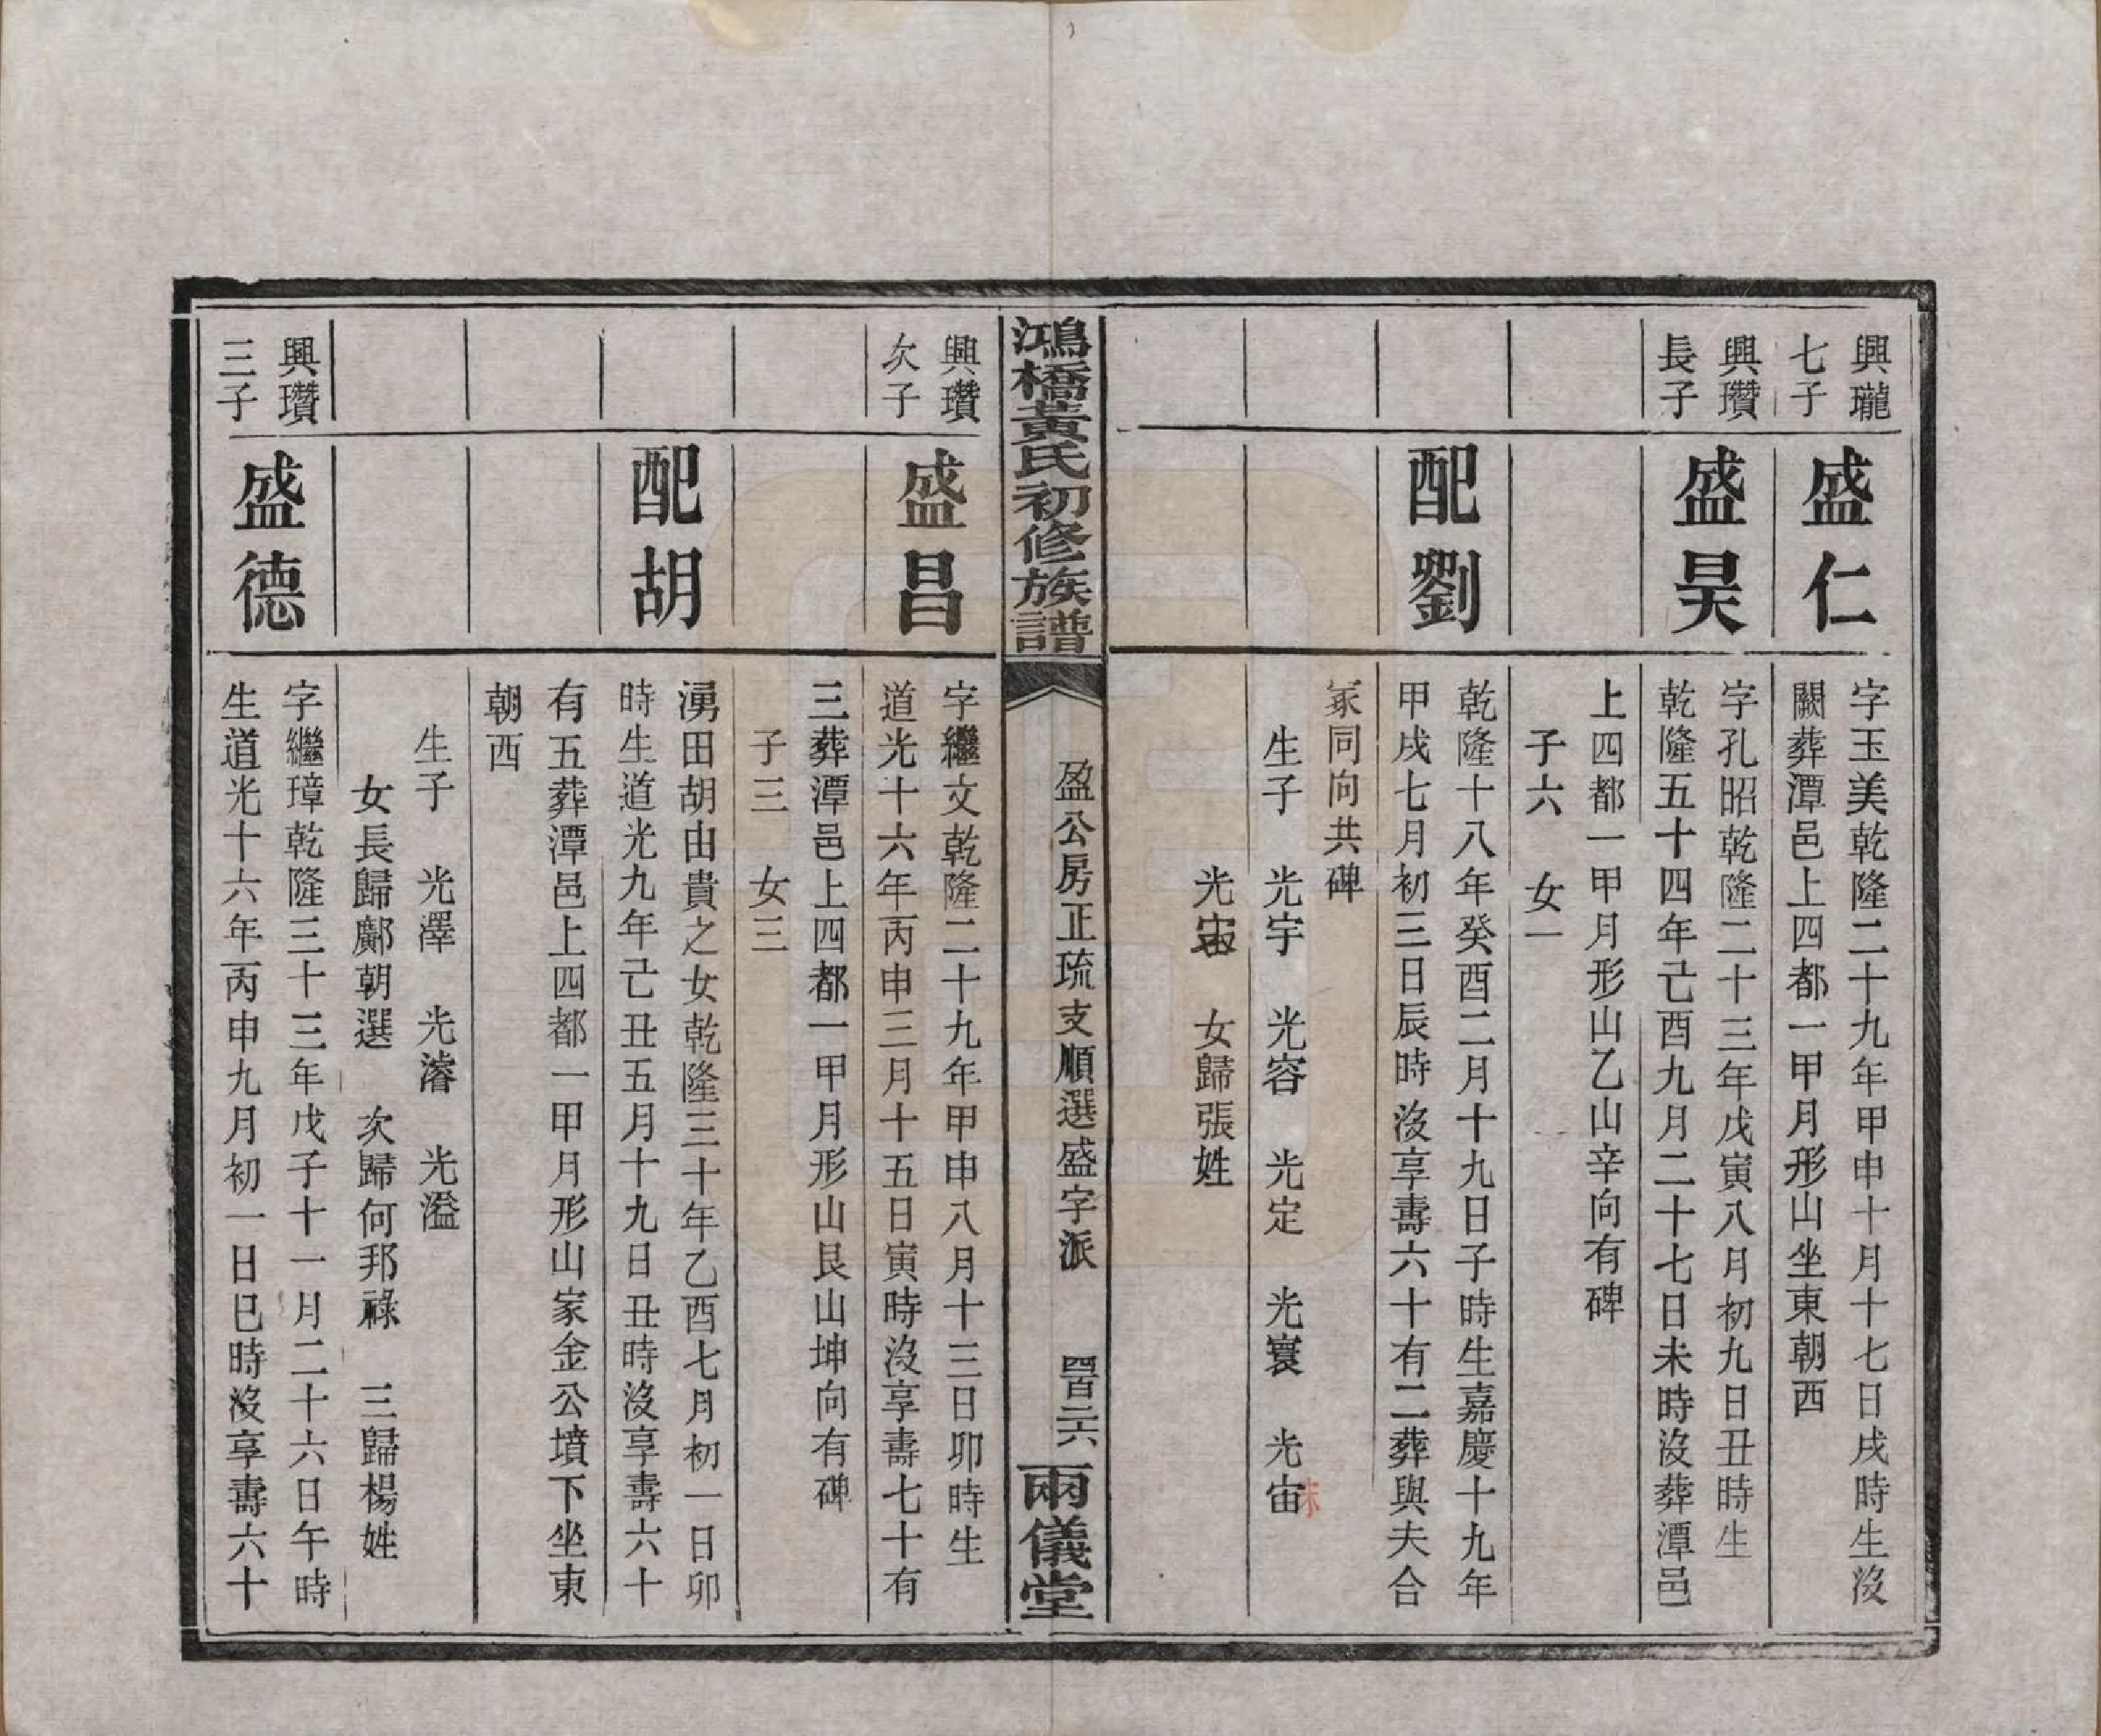 興瓏
七子
盛仁
字玉美乾隆二十九年甲申十月十七日戌時生沒
闕葬潭邑上四都一甲月形山坐東朝西
興瓚
長子
盛昊
字孔昭乾隆二十三年戊寅八月初九日丑時生
乾隆五十四年己酉九月二十七日未時沒葬潭邑
上四都一甲月形山乙山辛向有碑
子六 女一
配劉
乾隆十八年癸酉二月十九日子時生嘉慶十九年
甲戌七月初三日辰時沒享壽六十有二葬與夫合
冢同向共碑
生子 光宇 光容 光定 光寰 光宙
光 女歸張姓
鴻橋黃氏初修族譜
盈公房正琉支順選盛字派
四百二六
兩儀堂
興瓚
次子
盛昌
字繼文乾隆二十九年甲申八月十三日卯時生
道光十六年丙申三月十五日寅時沒享壽七十有
三葬潭邑上四都一甲月形山艮山坤向有碑
子三 女三
配胡
湧田胡由貴之女乾隆三十年乙酉七月初一日卯
時生道光九年己丑五月十九日丑時沒享壽六十
有五葬潭邑上四都一甲月形山家金公墳下坐東
朝西
生子 光澤 光濬 光溢
女長歸鄺朝選 次歸何邦祿 三歸楊姓
興瓚
三子
盛德
字繼璋乾隆三十三年戊子十一月二十六日午時
生道光十六年丙申九月初一日巳時沒享壽六十